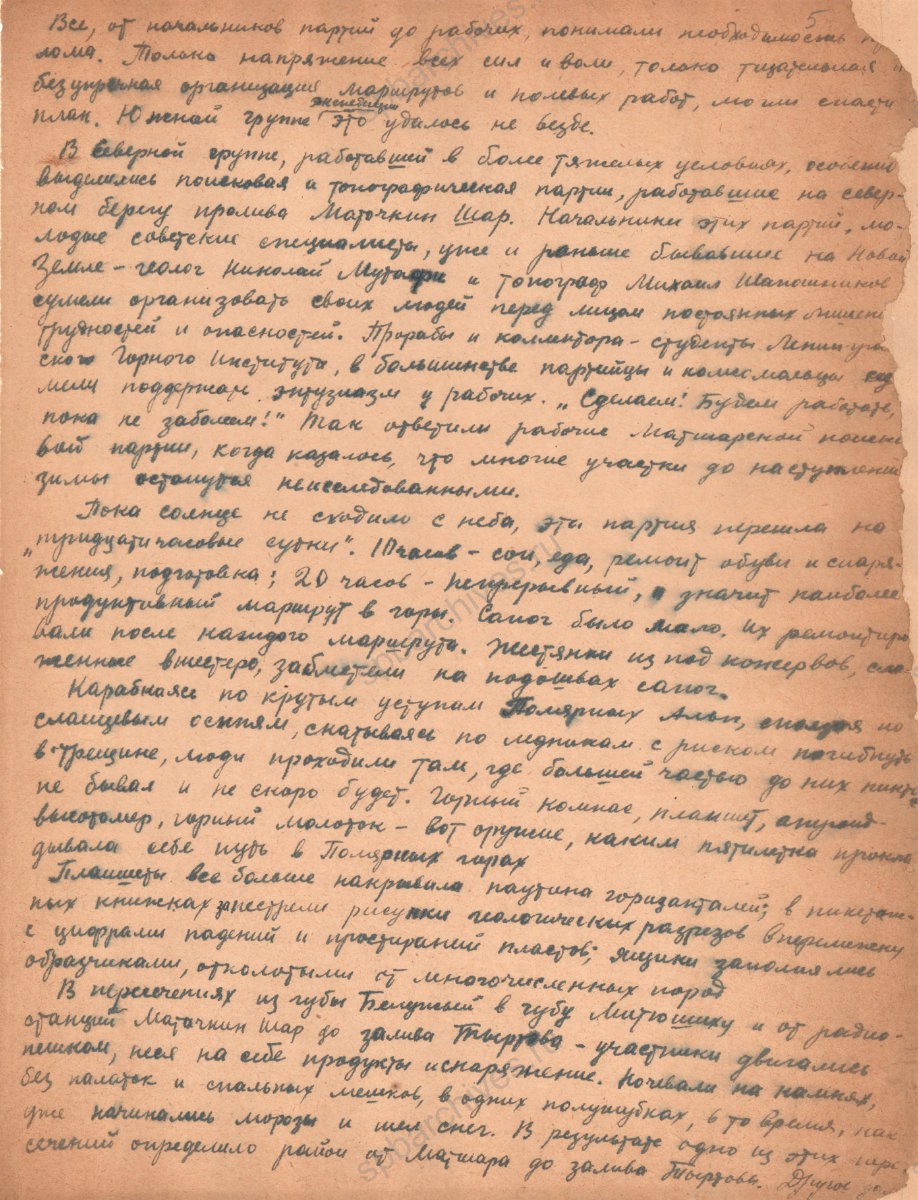 5
Все, от начальников партий до рабочих, понимали необходимость пе
лома. Только напряжение всех сил и воли, только тщательная и
безупречная организация маршрутов и полевых работ, могли спасти
экспедиции
план. Южной группе это удалось не везде.
В Северной группе, работавшей в более тяжелых условиях, особенно
выделились поисковая и топографическая партии, работавшие на север-
ном берегу пролива Маточкин Шар. Начальники этих партий, мо-
лодые советские специалисты, уже и раньше бывавшие на Новой
Земле - геолог Николай Мутафи и топограф Михаил Шапошников
сумели организовать своих людей перед лицом постоянных лишений
трудностей и опасностей. Прорабы и коллектора - студенты Ленинград
ского Горного Института, в большинстве партийцы и комсомольцы су
мели поддержать энтузиазм у рабочих. „Сделаем! Будем работать,
пока не заболеем!" Так ответили рабочие Матшарской поиско
вой партии, когда казалось, что многие участки до наступления
зимы останутся неисследованными.
Пока солнце не сходило с неба, эта партия перешла на
„тридцатичасовые сутки". 10 часов - сон, еда, ремонт обуви и снаря-
жения, подготовка; 20 часов - непрерывный, значит наиболее
продуктивный маршрут в горы. Сапог было мало. Их ремонтиро
вали после каждого маршрута. Жестянки из под консервов, сло-
женные вшестеро, заблестели на подошвах сапог.
Карабкаясь по крутым уступам Полярных Альп, сползая по
сланцевым осыпям, скатываясь по ледникам с риском погибнуть
в трещине, люди проходили там, где большей частью до них никто
не бывал и не скоро будет. Горный компас, планшет, анероид-
высотомер, горный молоток - вот оружие, каким пятилетка прокла
дывала себе путь в Полярных горах
Планшеты все больше накрывала паутина горизонталей; в пикетаж-
ных книжках запестрели рисунки геологических разрезов вперемежку
с цифрами падений и простираний пластов; ящики заполнялись
образчиками, отколотыми от многочисленных пород
В пересечениях из губы Белужьей в губу Митюшиху и от радио-
станции Маточкин Шар до залива Тыртова - участники двигались
пешком, неся на себе продукты и снаряжение. Ночевали на камнях,
без палаток и спальных мешков, в одних полушубках, в то время, как
уже начинались морозы и шел снег. В результате одно из этих пере
сечений определило район от Матшара до залива Тыртова. Другое
spbarchives.ru
spbarchives.ru
spbarchives.ru